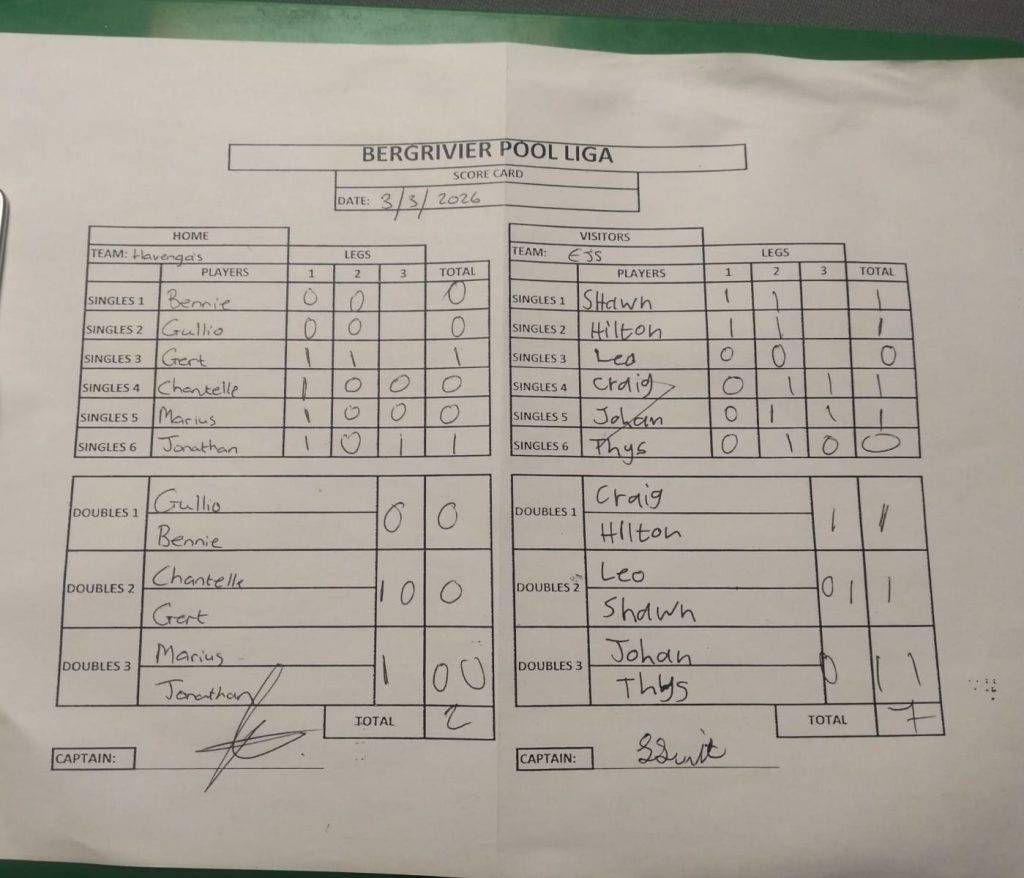 BERGRIVIER POOL LIGA
SCORE CARD
DATE: 3/3/2026
HOME
TEAM: Havenga's LEGS
PLAYERS 1 2 3 TOTAL
SINGLES 1 Bennie 0 0 0
SINGLES 2 Gullio 0 0 0
SINGLES 3 Gert 1 1 1
SINGLES 4 Chantelle 1 0 0 0
SINGLES 5 Marius 1 0 0 0
SINGLES 6 Jonathan 1 0 1 1
DOUBLES 1 Gullio 0 0
Bennie
DOUBLES 2 Chantelle 1 0 0
Gert
DOUBLES 3 Marius 1 0 0
Jonathan
TOTAL 2
CAPTAIN:
VISITORS
TEAM: EJS LEGS
PLAYERS 1 2 3 TOTAL
SINGLES 1 SHawn 1 1 1
SINGLES 2 Hilton 1 1 1
SINGLES 3 Leo 0 0 0
SINGLES 4 Craig 0 1 1 1
SINGLES 5 Johan 0 1 1 1
SINGLES 6 Thys 0 1 0 0
DOUBLES 1 Craig 1 1
HIlton
DOUBLES 2 Leo 0 1 1
Shawn
DOUBLES 3 Johan 0 1 1
Thys
TOTAL 7
CAPTAIN: